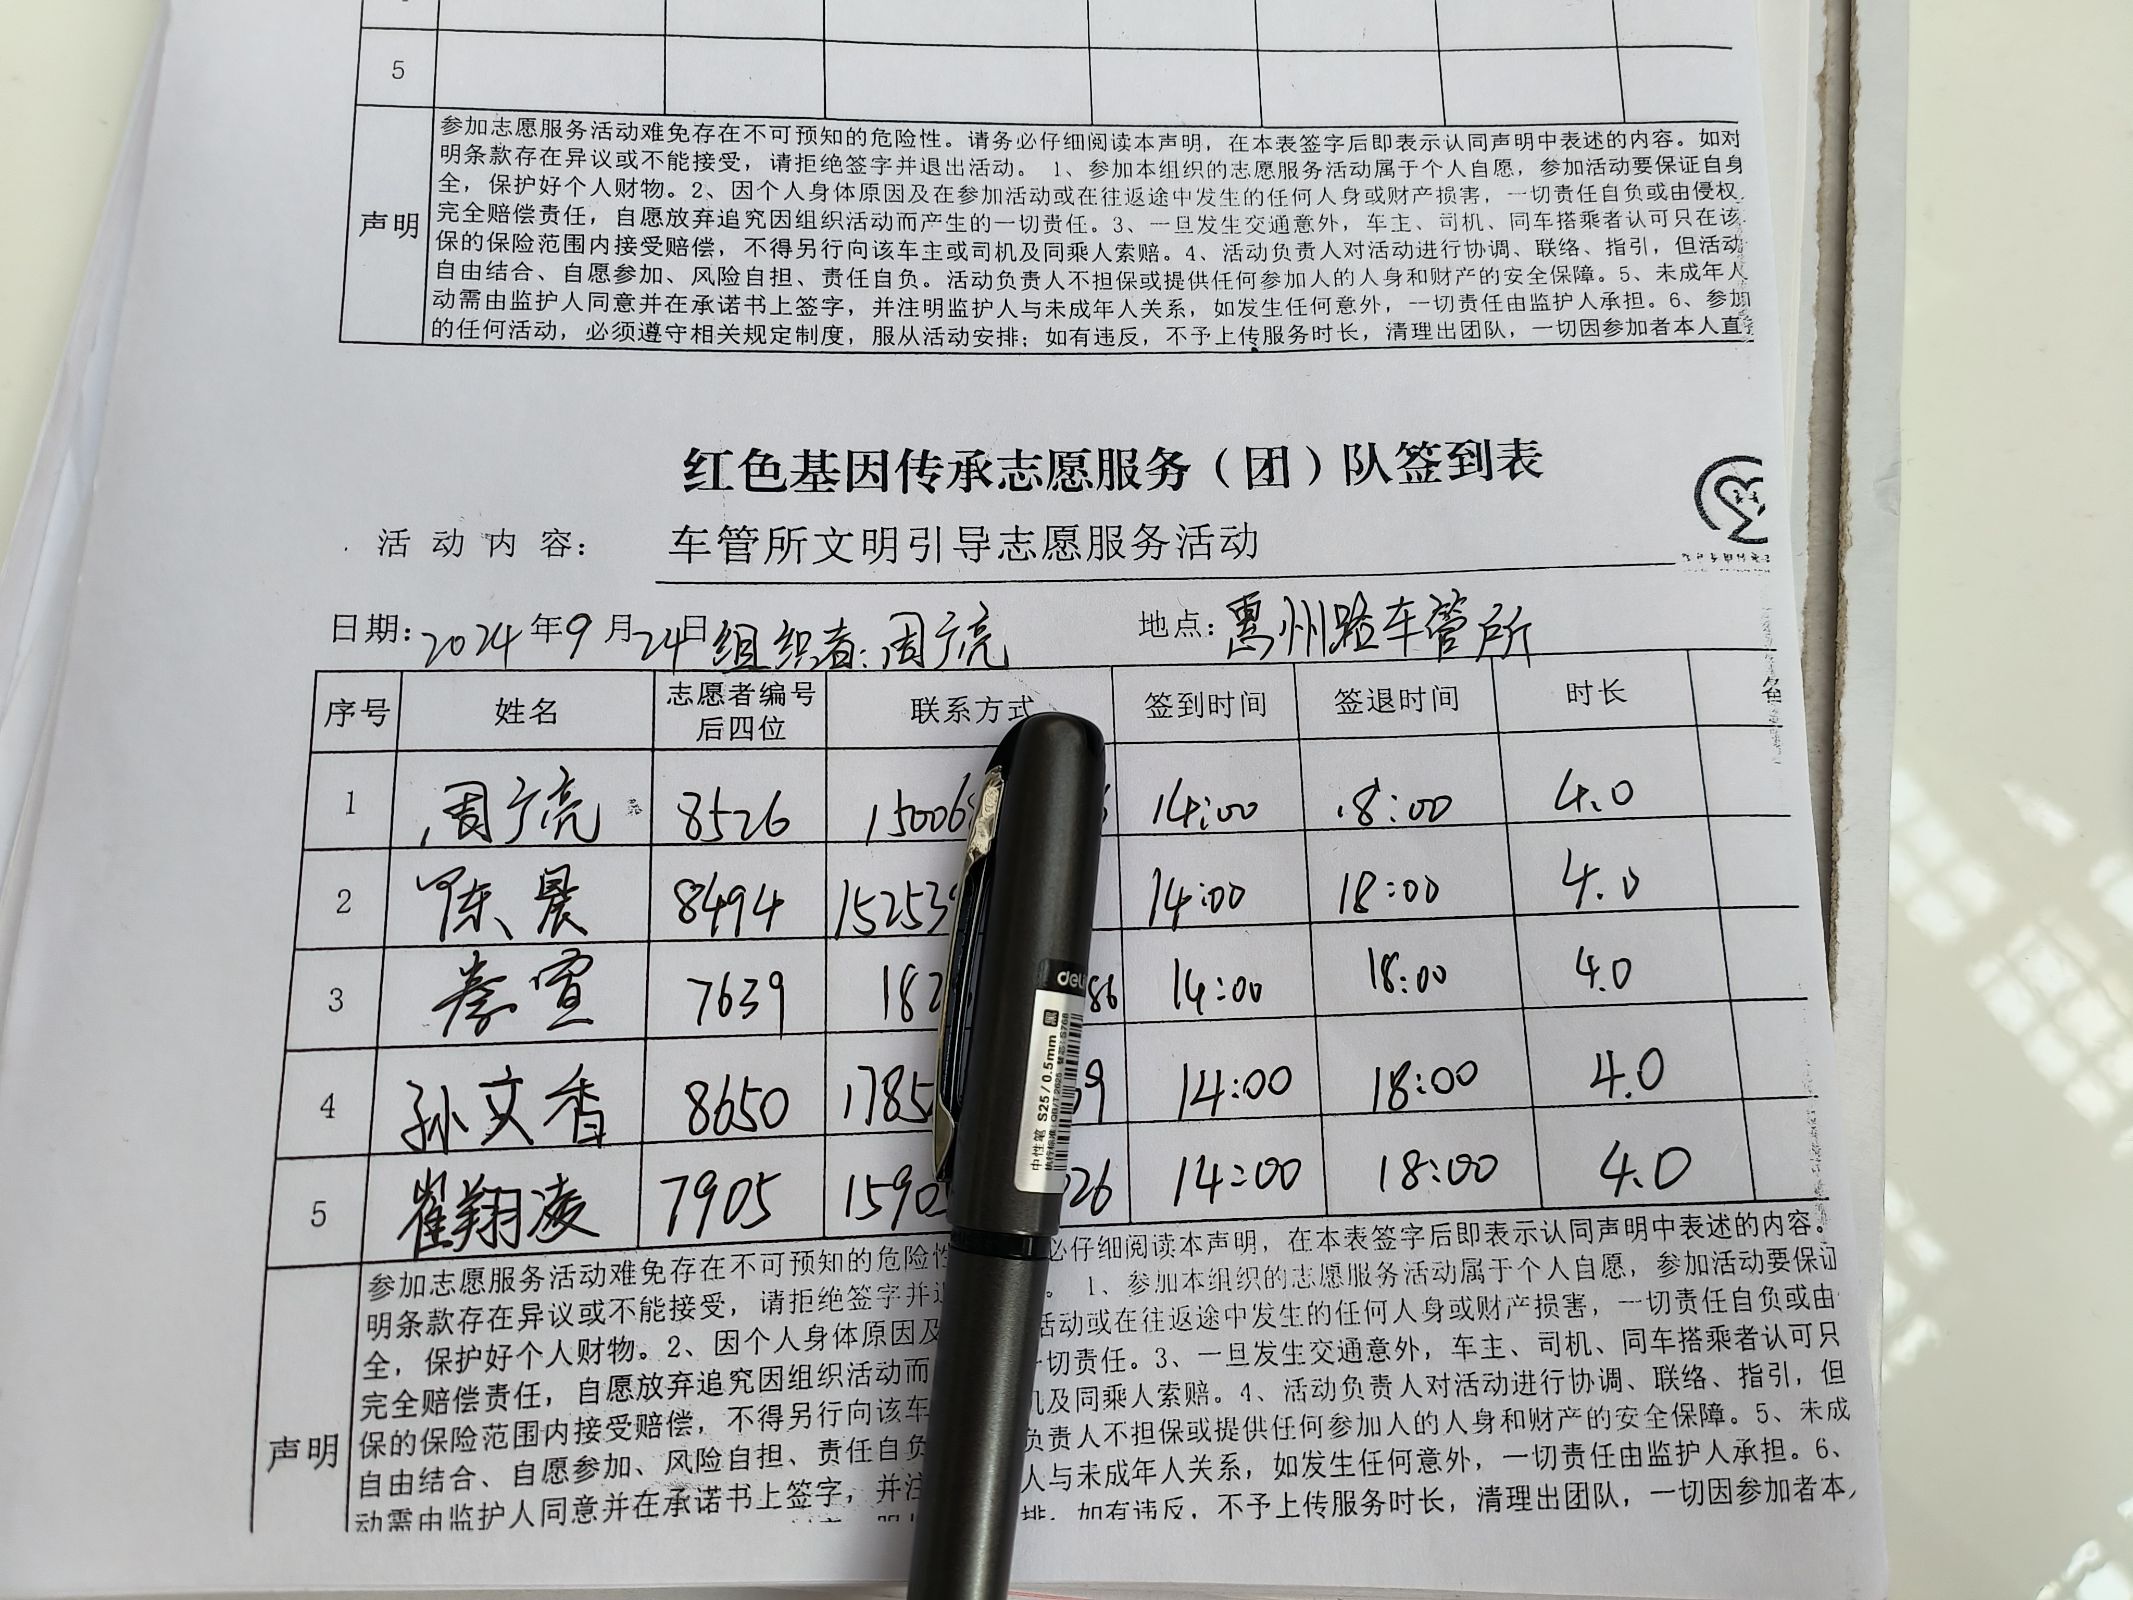 5
声明
参加志愿服务活动难免存在不可预知的危险性。请务必仔细阅读本声明，在本表签字后即表示认同声明中表述的内容。如对
明条款存在异议或不能接受，请拒绝签字并退出活动。 1、参加本组织的志愿服务活动属于个人自愿，参加活动要保证自身
全，保护好个人财物。2、因个人身体原因及在参加活动或在往返途中发生的任何人身或财产损害，一切责任自负或由侵权
完全赔偿责任，自愿放弃追究因组织活动而产生的一切责任。3、一旦发生交通意外，车主、司机、同车搭乘者认可只在该
保的保险范围内接受赔偿，不得另行向该车主或司机及同乘人索赔。4、活动负责人对活动进行协调、联络、指引，但活动
自由结合、自愿参加、风险自担、责任自负。活动负责人不担保或提供任何参加人的人身和财产的安全保障。5、未成年人
动需由监护人同意并在承诺书上签字，并注明监护人与未成年人关系，如发生任何意外，一切责任由监护人承担。6、参加
的任何活动，必须遵守相关规定制度，服从活动安排；如有违反，不予上传服务时长，清理出团队，一切因参加者本人直
红色基因传承志愿服务（团）队签到表
活动内容： 车管所文明引导志愿服务活动
日期：2024年9月24日 组织者：周广亮 地点：惠州路车管所
序号 姓名 志愿者编号后四位 联系方式 签到时间 签退时间 时长
1 周广亮 8526 15006 14:00 18:00 4.0
2 陈晨 8494 15253 14:00 18:00 4.0
3 秦萱 7639 182 86 14:00 18:00 4.0
4 孙文香 8650 1785 39 14:00 18:00 4.0
5 崔翔凌 7905 1590 26 14:00 18:00 4.0
声明
参加志愿服务活动难免存在不可预知的危险性 必仔细阅读本声明，在本表签字后即表示认同声明中表述的内容。
明条款存在异议或不能接受，请拒绝签字并退 。 1、参加本组织的志愿服务活动属于个人自愿，参加活动要保证
全，保护好个人财物。2、因个人身体原因及 活动或在往返途中发生的任何人身或财产损害，一切责任自负或由
完全赔偿责任，自愿放弃追究因组织活动而 一切责任。3、一旦发生交通意外，车主、司机、同车搭乘者认可只
保的保险范围内接受赔偿，不得另行向该车 机及同乘人索赔。4、活动负责人对活动进行协调、联络、指引，但
自由结合、自愿参加、风险自担、责任自负 负责人不担保或提供任何参加人的人身和财产的安全保障。5、未成
动需由监护人同意并在承诺书上签字，并注 人与未成年人关系，如发生任何意外，一切责任由监护人承担。6、
排；如有违反，不予上传服务时长，清理出团队，一切因参加者本
deli
中性笔 S25/0.5mm 黑
执行标准：QB/T 2625 替芯：S768